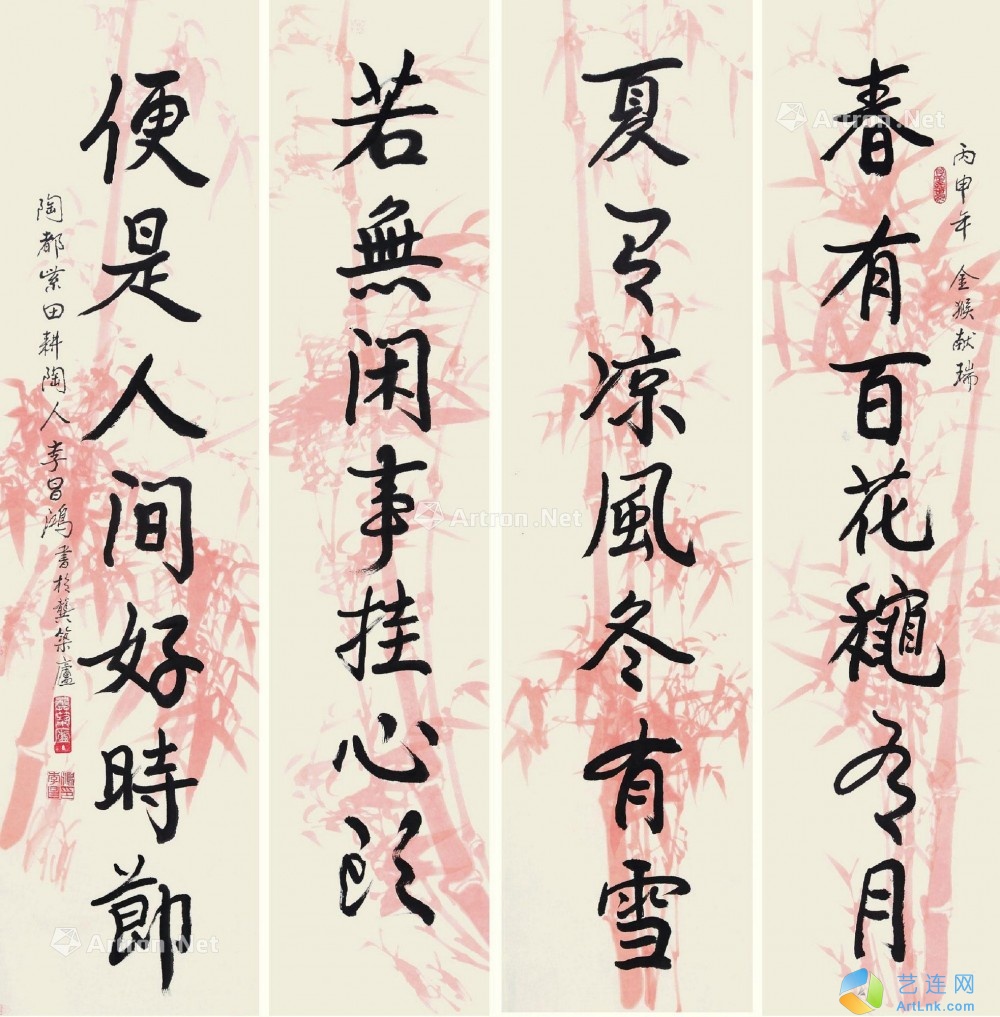 丙申年 金猴献瑞
春有百花穐有月
夏有凉風冬有雪
若無闲事挂心头
便是人间好時節
陶都紫田耕陶人李昌鴻書於龔築廬
Artron.Net
Artron.Net
Artron.Net
Artron.Net
艺连网
ArtLnk.com